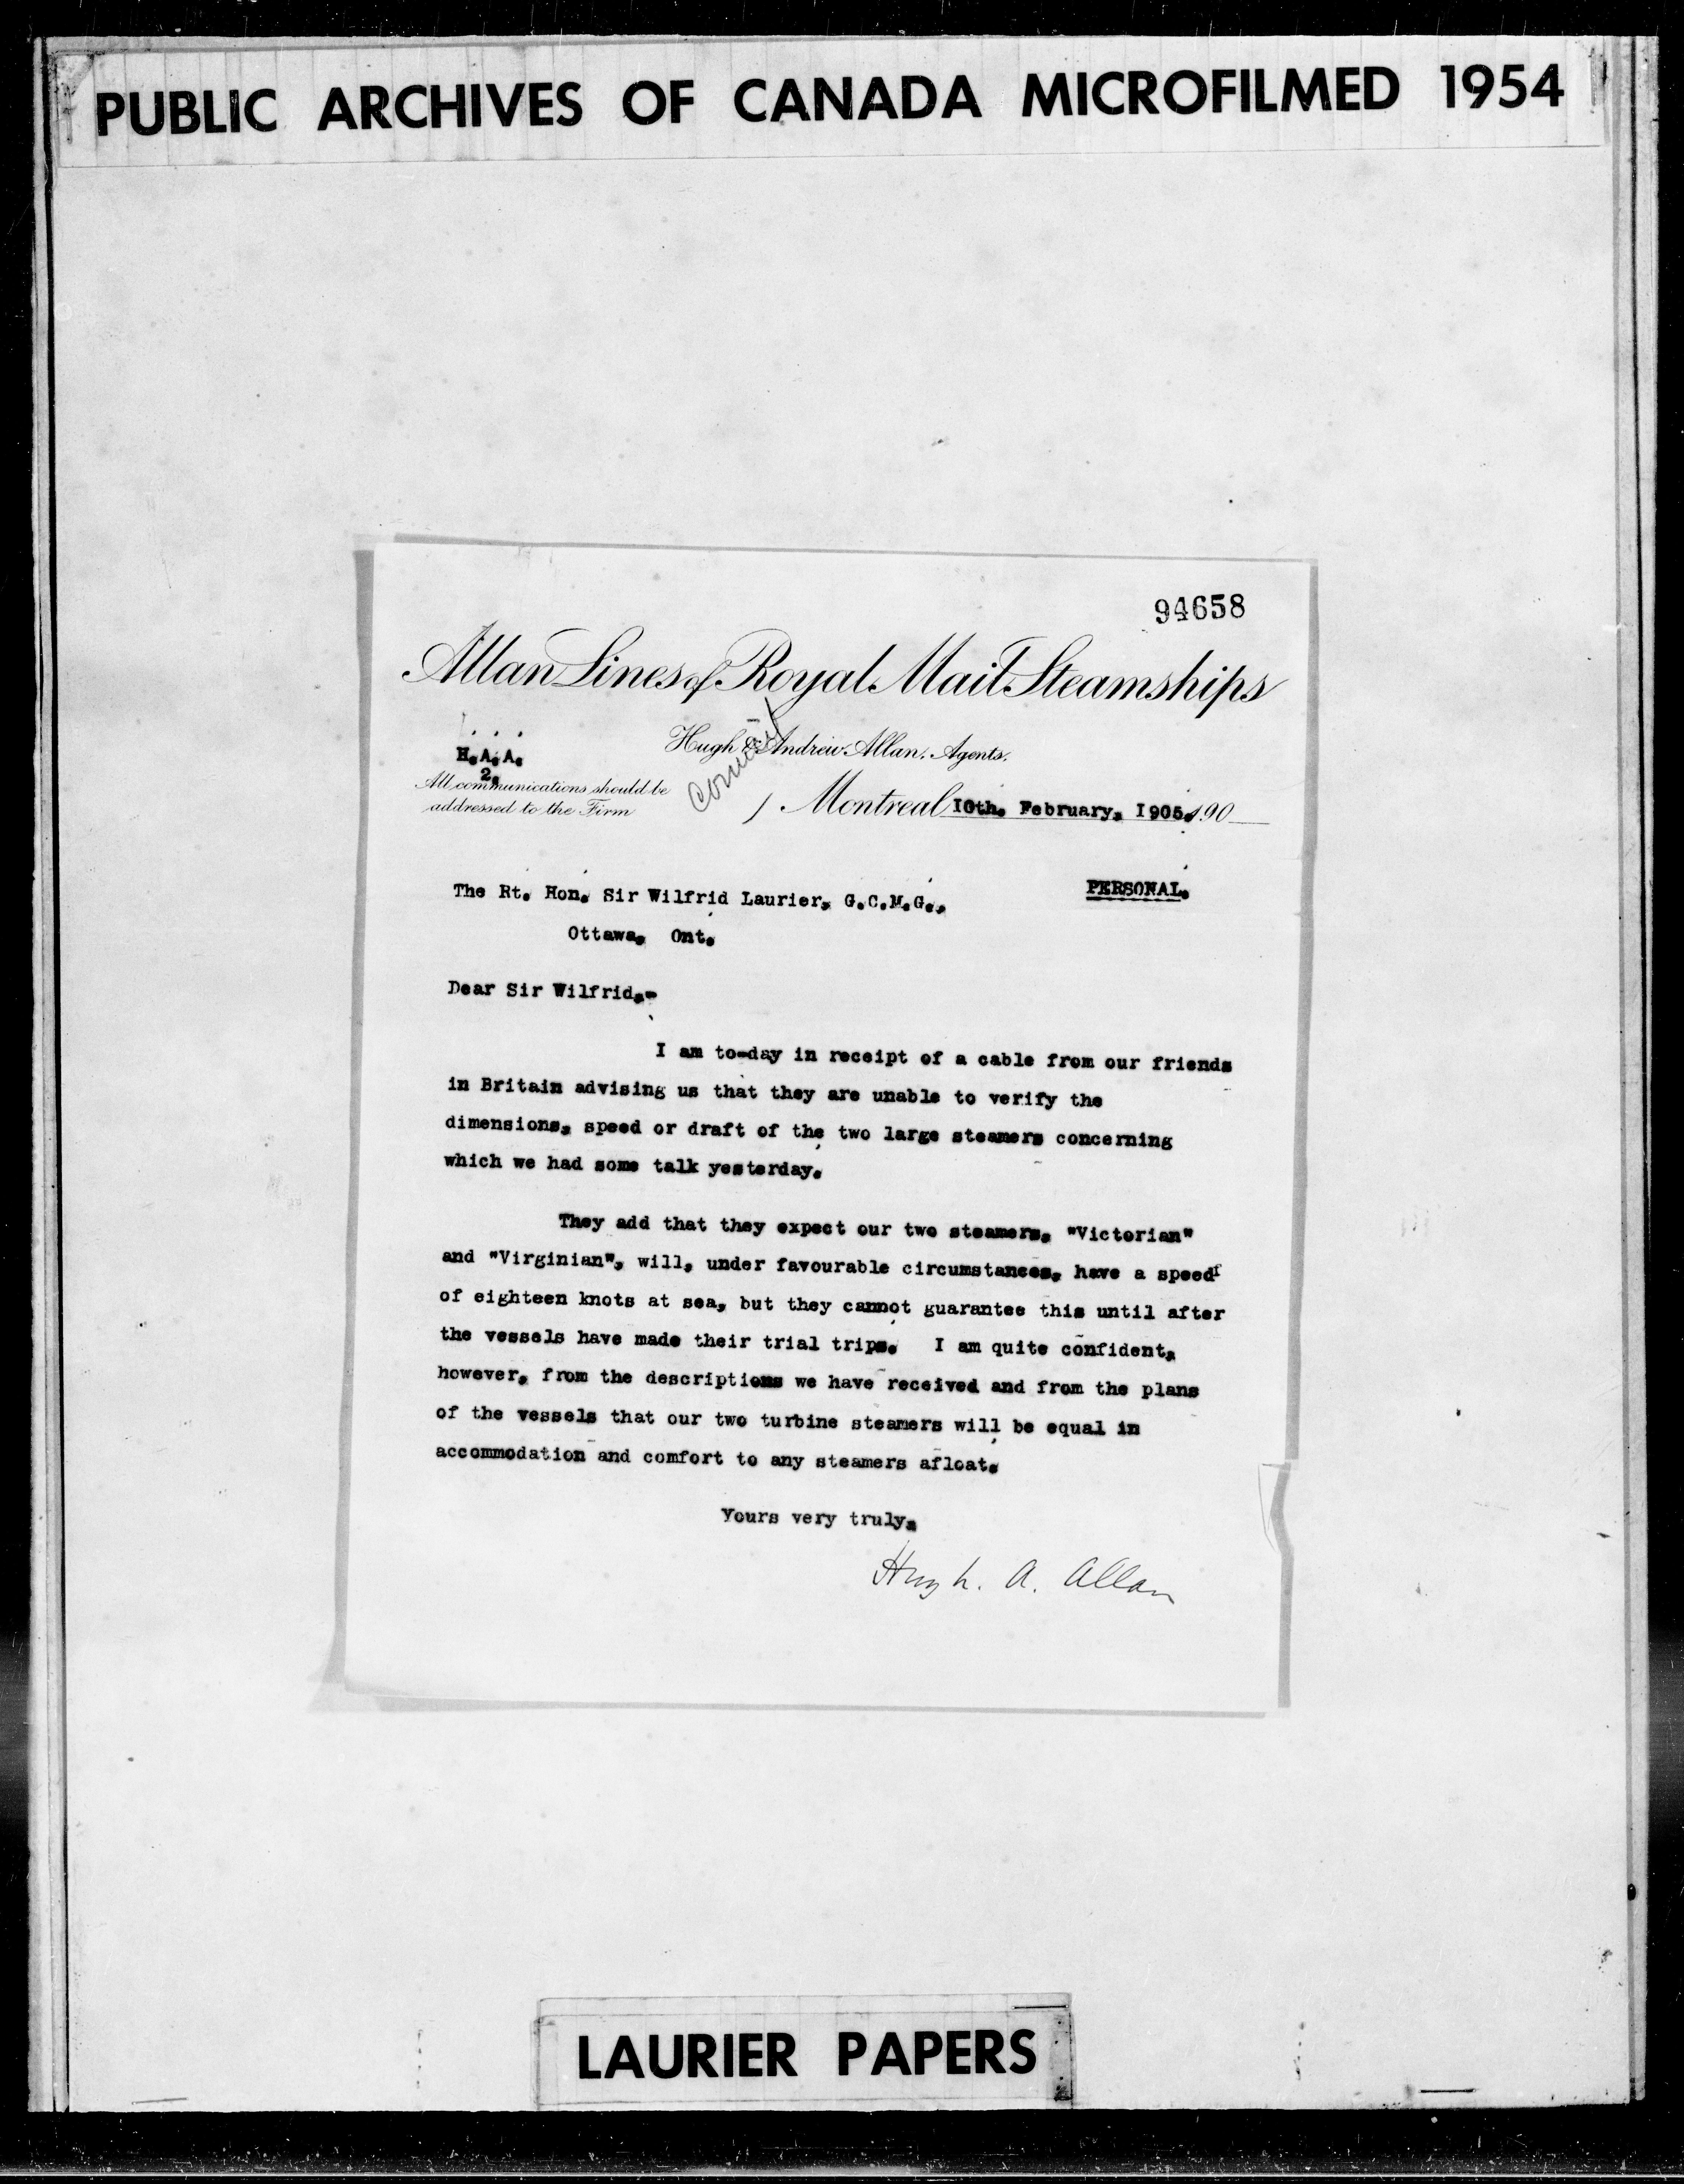 PUBLIC ARCHIVES OF CANADA MICROFILMED 1954
94658
Allan Lines of Royal Mail Steamships
Hugh & Andrew Allan, Agents.
H.A.A.
2.
All communications should be
addressed to the Firm
Montreal 10th. February, 1905. 190
PERSONAL.
The Rt. Hon. Sir Wilfrid Laurier, G.C.M.G.,
Ottawa, Ont.
Dear Sir Wilfrid,-
I am to-day in receipt of a cable from our friends
in Britain advising us that they are unable to verify the
dimensions, speed or draft of the two large steamers concerning
which we had some talk yesterday.
They add that they expect our two steamers, "Victorian"
and "Virginian", will, under favourable circumstances, have a speed
of eighteen knots at sea, but they cannot guarantee this until after
the vessels have made their trial trips. I am quite confident,
however, from the descriptions we have received and from the plans
of the vessels that our two turbine steamers will be equal in
accommodation and comfort to any steamers afloat.
Yours very truly,
Hugh. A. Allan
LAURIER PAPERS